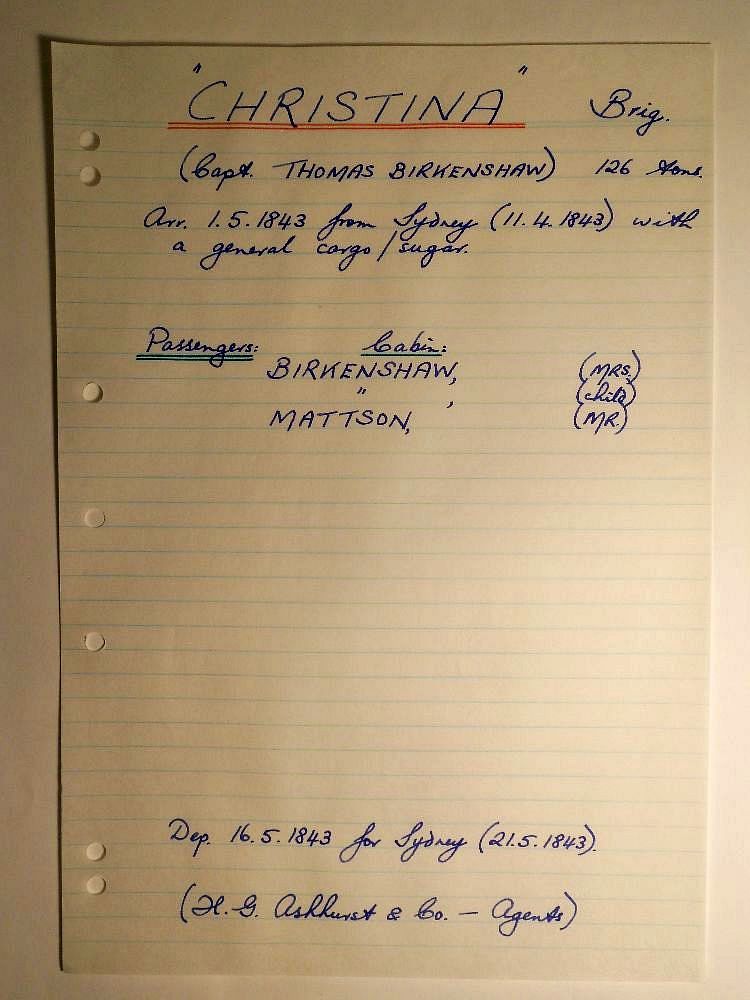 "CHRISTINA" Brig.
(Capt. THOMAS BIRKENSHAW) 126 tons.
Arr. 1.5.1843 from Sydney (11.4.1843) with
a general cargo/sugar.
Passengers: Cabin:
BIRKENSHAW, (MRS.)
" , (child)
MATTSON, (MR.)
Dep. 16.5.1843 for Sydney (21.5.1843).
(H.G. Ashhurst & Co. — Agents)